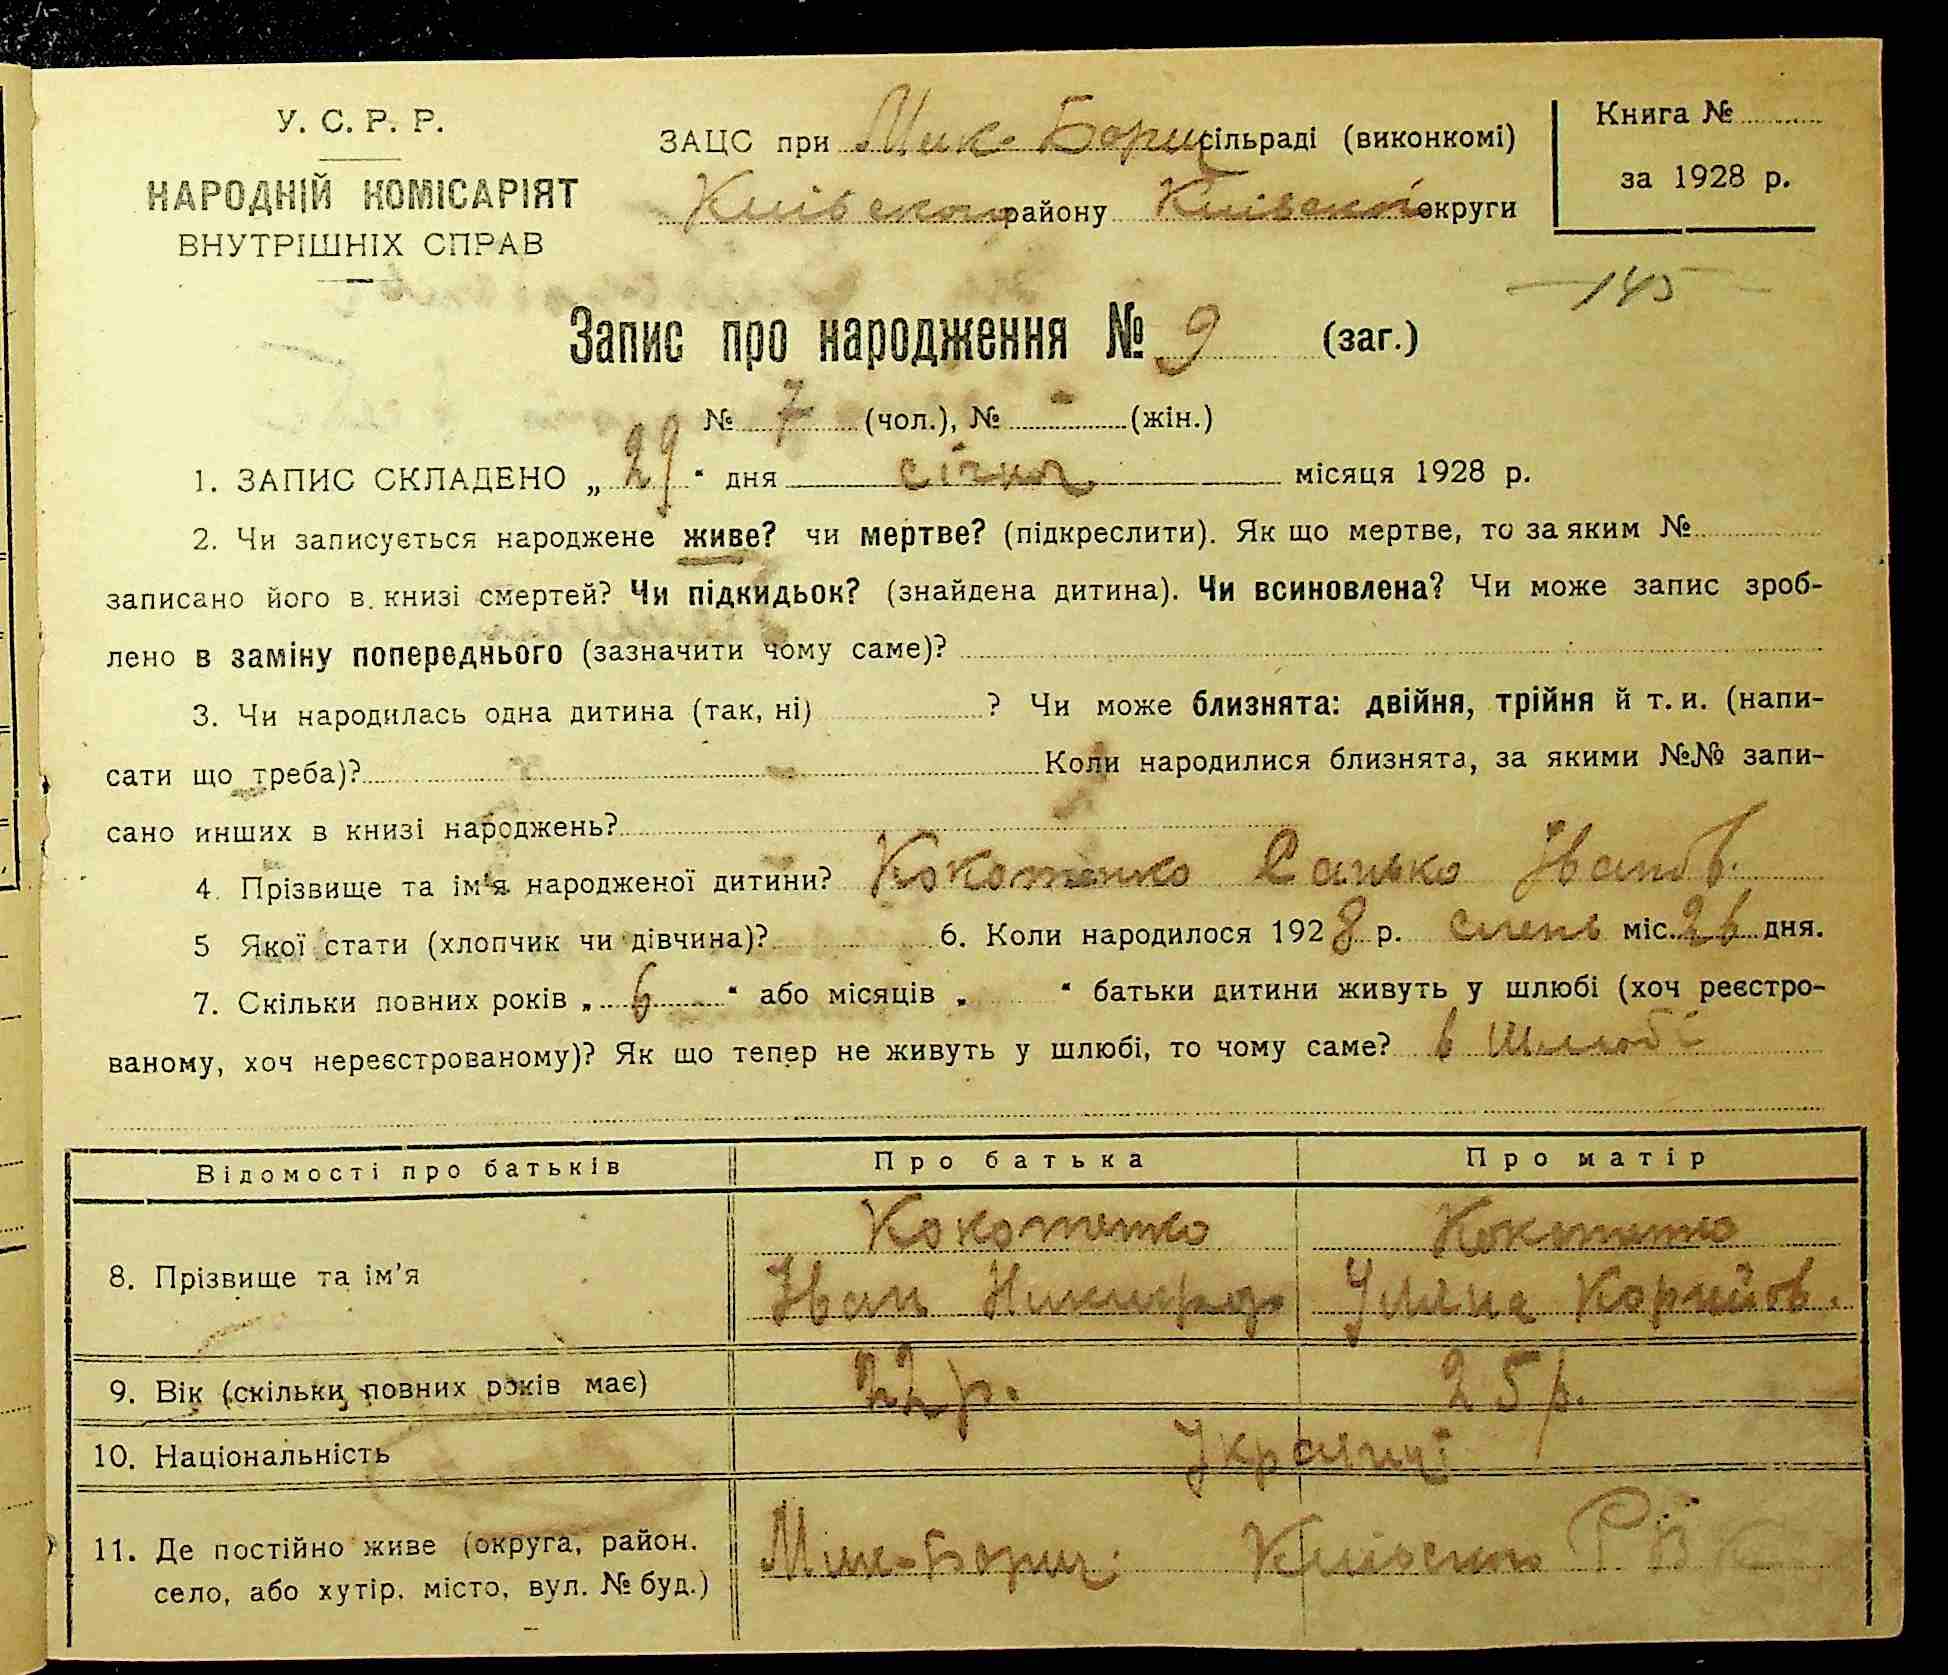 У. С. Р. Р.
НАРОДНІЙ КОМІСАРІЯТ
ВНУТРІШНІХ СПРАВ
ЗАЦС при Мик-Борщ сільраді (виконкомі)
Київського району Київської округи
Книга №
за 1928 р.
145
Запис про народження № 9 (заг.)
№ 7 (чол.), № - (жін.)
1. ЗАПИС СКЛАДЕНО „ 29 “ дня січня місяця 1928 р.
2. Чи записується народжене живе? чи мертве? (підкреслити). Як що мертве, то за яким №
записано його в книзі смертей? Чи підкидьок? (знайдена дитина). Чи всиновлена? Чи може запис зроб-
лено в заміну попереднього (зазначити чому саме)?
3. Чи народилась одна дитина (так, ні) ? Чи може близнята: двійня, трійня й т. и. (напи-
сати що треба)? - Коли народилися близнята, за якими №№ запи-
сано инших в книзі народжень?
4. Прізвище та ім'я народженої дитини? Кокотенко Санько Іванов.
5 Якої стати (хлопчик чи дівчина)? 6. Коли народилося 1928 р. січень міс. 26 дня.
7. Скільки повних років „ 6 “ або місяців „ “ батьки дитини живуть у шлюбі (хоч реєстро-
ваному, хоч нереєстрованому)? Як що тепер не живуть у шлюбі, то чому саме? в шлюбі
Відомості про батьків Про батька Про матір
Кокотенко Кокотенко
8. Прізвище та ім'я Іван Уляна
9. Вік (скільки повних років має) 22 р. 25 р.
10. Національність Українці
11. Де постійно живе (округа, район, Мик-Борщ. Київського РВК
село, або хутір, місто, вул. № буд.)